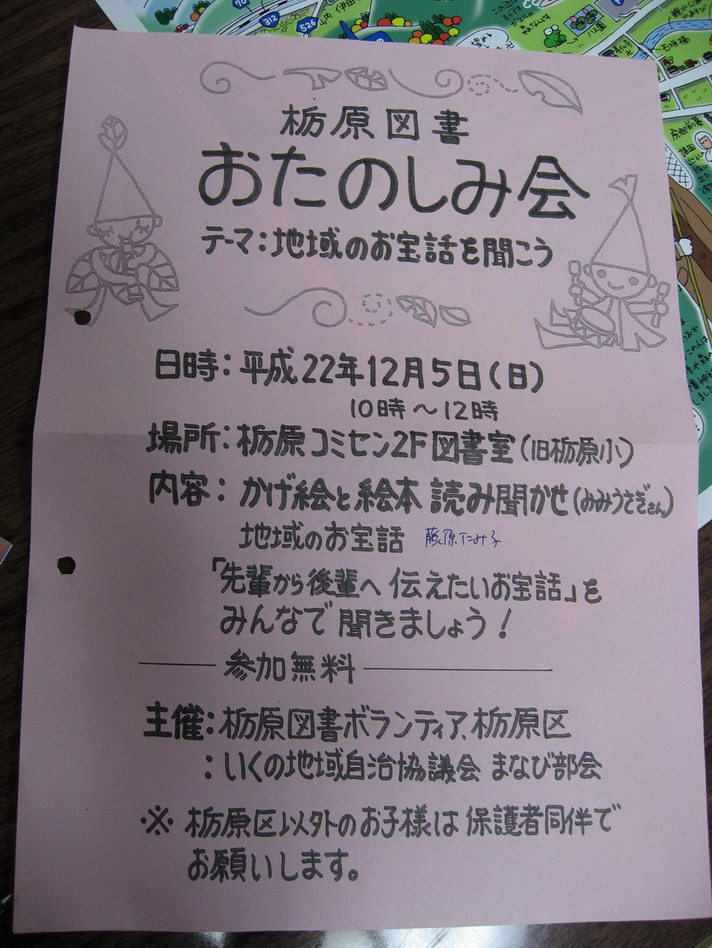 栃原図書
おたのしみ会
テーマ：地域のお宝話を聞こう
日時：平成22年12月5日(日)
10時～12時
場所：栃原コミセン2F図書室(旧栃原小)
内容：かげ絵と絵本 読み聞かせ(みみうさぎさん)
地域のお宝話 藤原たみ子
「先輩から後輩へ 伝えたいお宝話」を
みんなで聞きましょう！
参加無料
主催：栃原図書ボランティア、栃原区
：いくの地域自治協議会 まなび部会
※ 栃原区以外のお子様は保護者同伴で
お願いします。
312
526